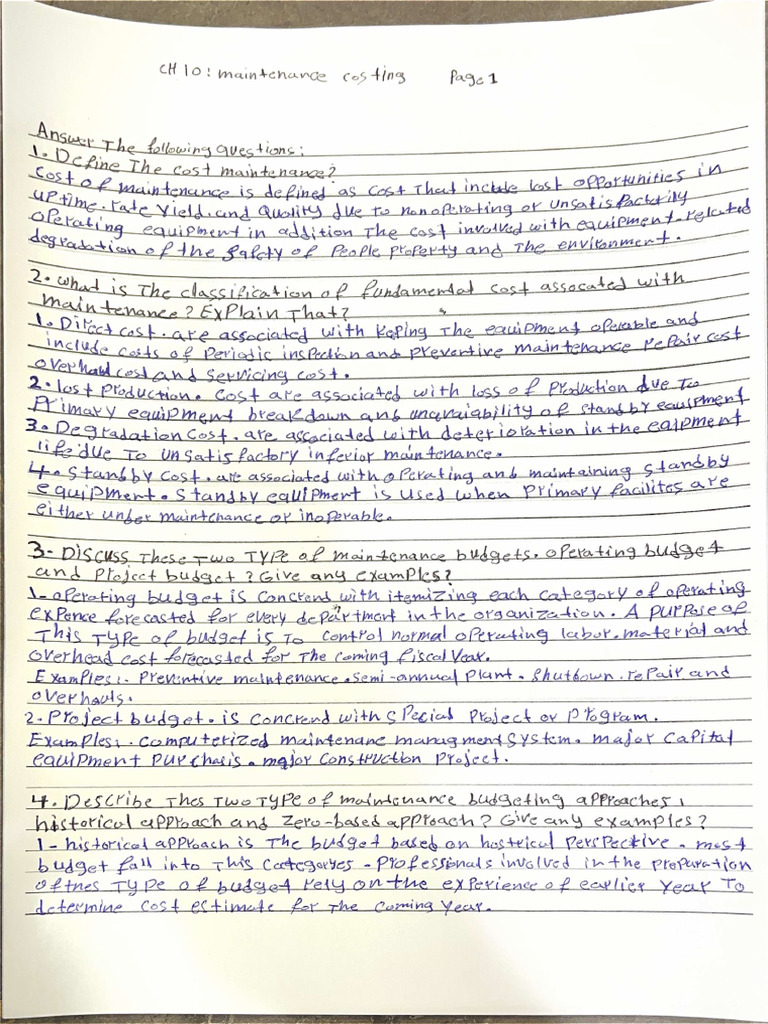 CH 10: maintenance costing Page 1
Answer The following questions:
1. Define The cost maintenance?
Cost of maintenance is defined as cost That include lost opportunities in
uptime. rate Yield. and Quality due to nonoperating or unsatisfactorily
operating equipment in addition The cost involved with equipment-related
degradation of the safety of People Property and The environment.
2. what is The classification of fundamental cost assocated with
maintenance? Explain That?
1. Direct cost. are associated with Keping The equipment operable and
include costs of Periodic inspection and preventive maintenance repair cost
overhaul cost and servicing cost.
2. lost production. cost are associated with loss of Production due To
Primary equipment breakdown and unavaiability of standby equipment
3. Degradation cost. are associated with deterioration in the eqipment
life due To unsatisfactory inferior maintenance.
4. standby cost. are associated with operating and maintaining standby
equipment. Standby equipment is used when Primary facilites are
either under maintenance or inoperable.
3- Discuss These Two Type of maintenance budgets. operating budget
and project budget? Give any examples?
1- operating budget is Concrend with itemizing each category of operating
expence forecasted for every department in the organization. A purpose of
This Type of budget is To control normal operating labor. material and
overhead cost forecasted for The coming fiscal Year.
Examples:. Preventive maintenance. semi-annual plant. shutdown. repair and
overhauls.
2. Project budget. is Concrend with special Project or program.
Examples:. Computerized maintenanc managment system. major capital
equipment purchasis. major construction project.
4. Describe Thes Two Type of maintenance budgeting approaches,
historical approach and Zero-based approach? Give any examples?
1- historical approach is The budget based on hostrical Perspective. most
budget fall into This Categoryes - Professionals involved in the preparation
of thes Type of budget rely on the experience of earlier Year To
determine cost estimate for The coming Year.